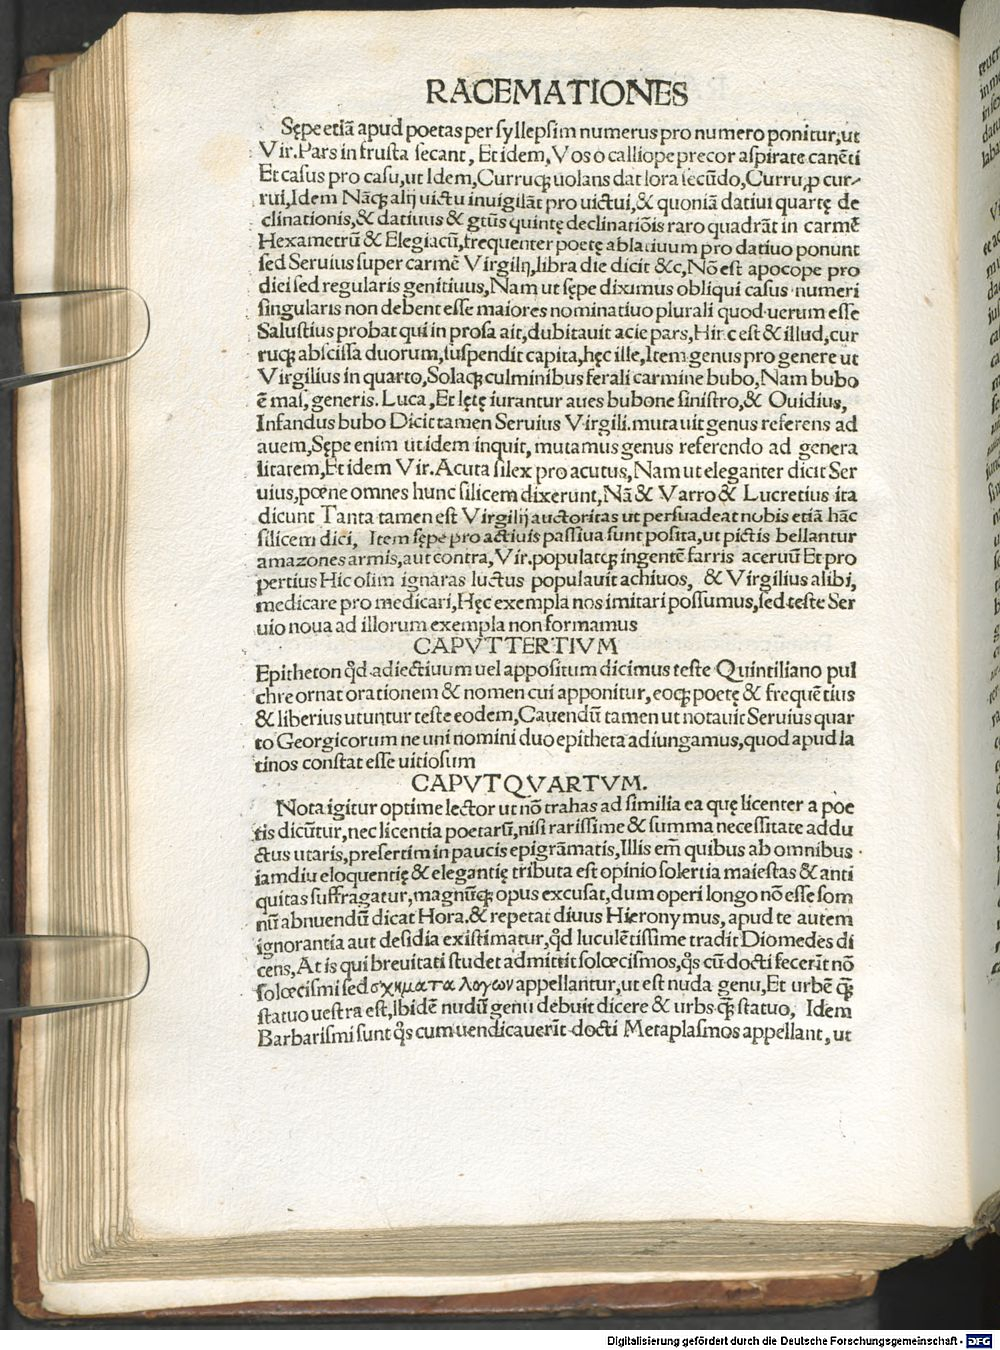 RACEMATIONES
Sępe etiā apud poetas per syllepsim numerus pro numero ponitur, ut
Vir. Pars in frusta secant, Et idem, Vos o calliope precor aspirate canēti
Et casus pro casu, ut Idem, Curruqꝫ uolans dat lora secūdo, Curru, ꝓ cur-
rui, Idem Nāqꝫ alij uictu inuigilāt pro uictui, & quoniā datiui quartę de
clinationis, & datiuus & gtūs quintę declinatiōis raro quadrāt in carmē
Hexametrū & Elegiacū, frequenter poetę ablatiuum pro datiuo ponunt
sed Seruius super carmē Virgilij, libra die dicit &c, Nō est apocope pro
diei sed regularis genitiuus, Nam ut sępe diximus obliqui casus numeri
singularis non debent esse maiores nominatiuo plurali quod uerum esse
Salustius probat qui in prosa ait, dubitauit acie pars, Hinc est & illud, cur
ruqꝫ abscissa duorum, suspendit capita, hęc ille, Item genus pro genere ut
Virgilius in quarto, Solaqꝫ culminibus ferali carmine bubo, Nam bubo
ē mas, generis. Luca, Et lętę iurantur aues bubone sinistro, & Ouidius,
Infandus bubo Dicit tamen Seruius Virgili. mutauit genus referens ad
auem, Sępe enim ut idem inquit, mutamus genus referendo ad genera
litatem, Et idem Vir. Acuta silex pro acutus, Nam ut eleganter dicit Ser
uius, pœne omnes hunc silicem dixerunt, Nā & Varro & Lucretius ita
dicunt Tanta tamen est Virgilij auctoritas ut persuadeat nobis etiā hāc
silicem dici, Item sępe pro actiuis passiua sunt posita, ut pictis bellantur
amazones armis, aut contra, Vir. populatqꝫ ingentē farris aceruū Et pro
pertius Hic olim ignaras luctus populauit achiuos, & Virgilius alibi,
medicare pro medicari, Hęc exempla nos imitari possumus, sed teste Ser
uio noua ad illorum exempla non formamus
CAPVT TERTIVM
Epitheton qd̄ adiectiuum uel appositum dicimus teste Quintiliano pul
chre ornat orationem & nomen cui apponitur, eoqꝫ poetę & frequētius
& liberius utuntur teste eodem, Cauendū tamen ut notauit Seruius quar
to Georgicorum ne uni nomini duo epitheta adiungamus, quod apud la
tinos constat esse uitiosum
CAPVT QVARTVM.
Nota igitur optime lector ut nō trahas ad similia ea quę licenter a poe
tis dicūtur, nec licentia poetarū, nisi rarissime & summa necessitate addu
ctus utaris, presertim in paucis epigrāmatis, Illis em̄ quibus ab omnibus
iamdiu eloquentię & elegantię tributa est opinio solertia maiestas & anti
quitas suffragatur, magnūqꝫ opus excusat, dum operi longo nō esse som
nū abnuendū dicat Hora. & repetat diuus Hieronymus, apud te autem
ignorantia aut desidia existimatur, qd̄ luculētissime tradit Diomedes di
cens, At is qui breuitati studet admittit solœcismos, q̊s cū docti fecerīt nō
solœcismi sed σχηματα λογων appellantur, ut est nuda genu, Et urbē q̄ꝫ
statuo uestra est, Ibidē nudū genu debuit dicere & urbs q̄ꝫ statuo, Idem
Barbarismi sunt q̊s cum uendicauerīt docti Metaplasmos appellant, ut
Digitalisierung gefördert durch die Deutsche Forschungsgemeinschaft - DFG